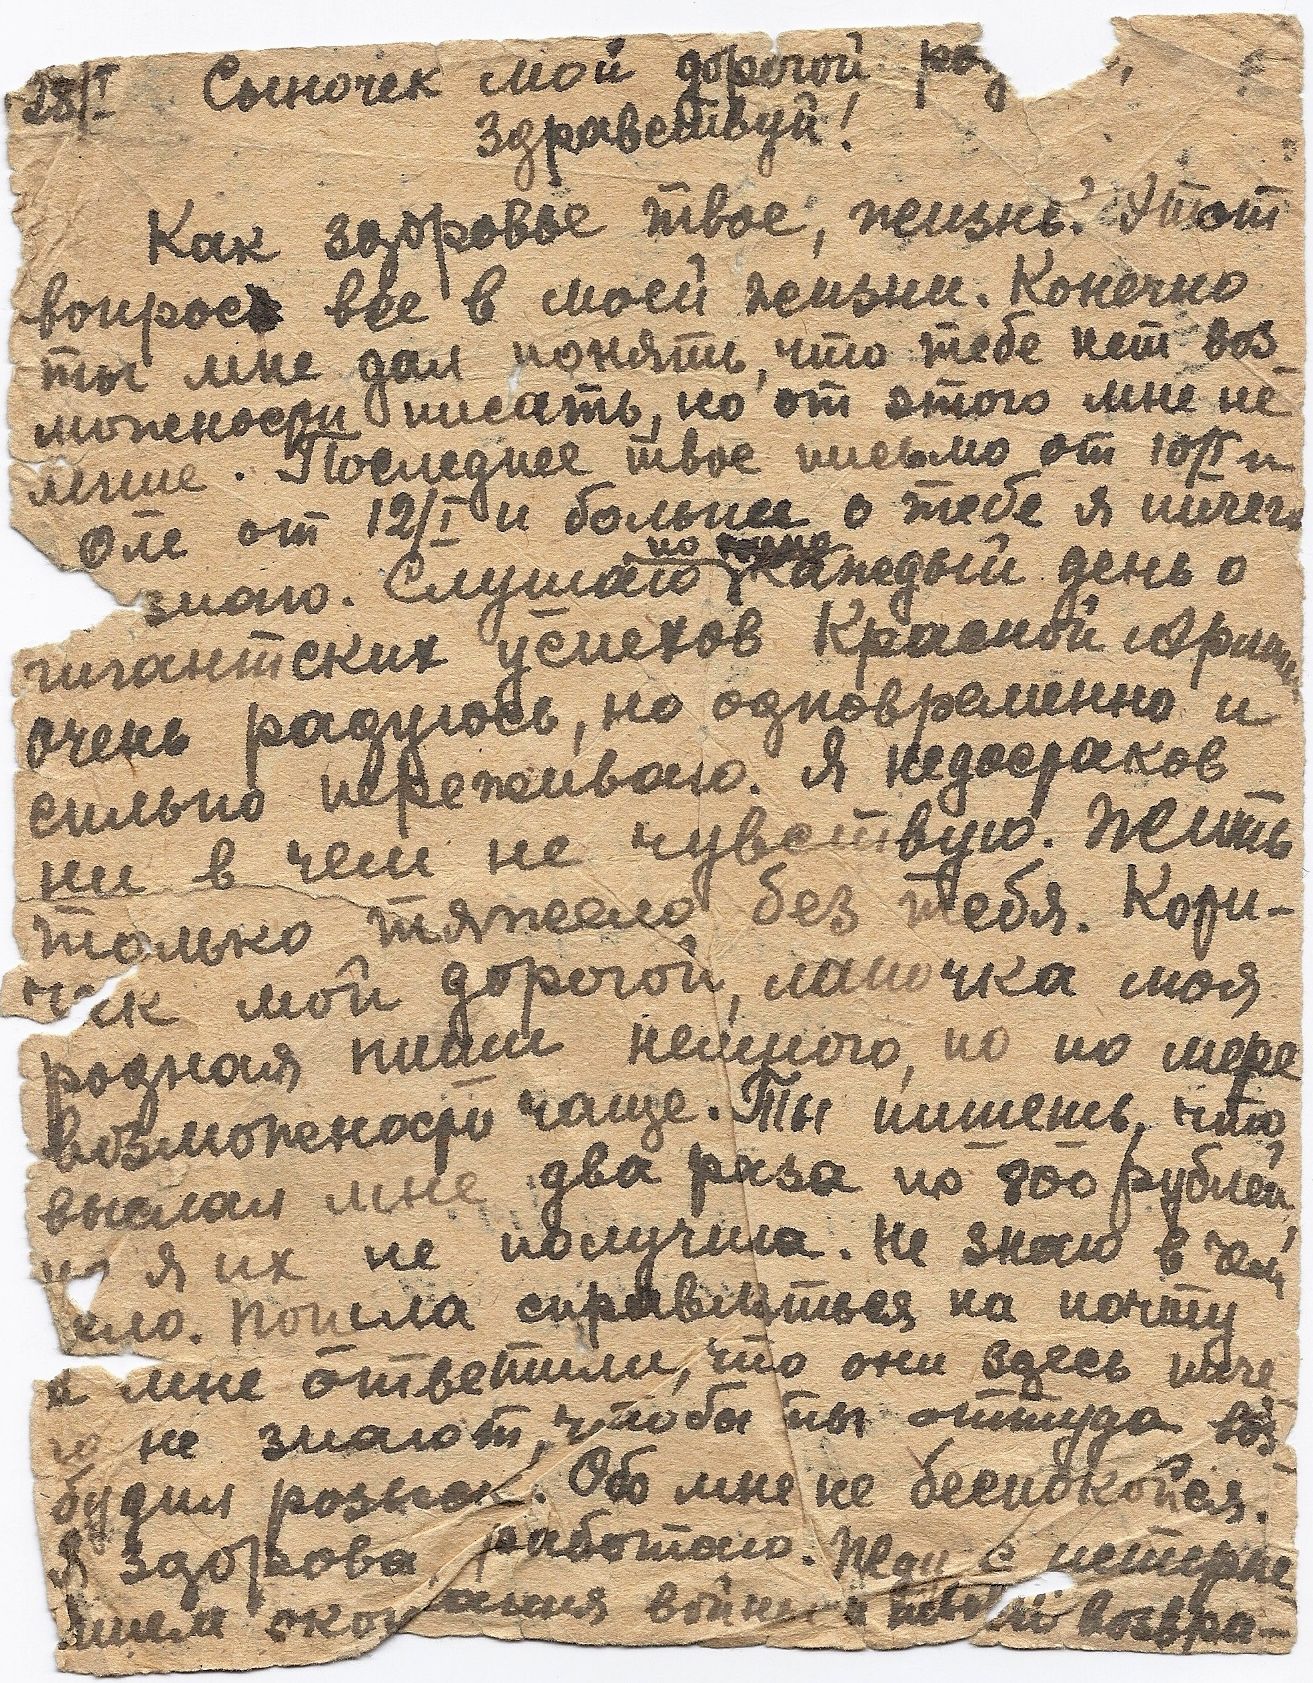 28/I Сыночек мой дорогой
Здравствуй!
Как здоровье твое, жизнь? Этот
вопрос все в моей жизни. Конечно
ты мне дал понять, что тебе нет воз
можности писать, но от этого мне не
легче. Последнее твое письмо от 10/I и
Оле от 12/I и больше о тебе я ничего
знаю. Слушаю по радио каждый день о
гигантских успехов Красной Армии
очень радуюсь, но одновременно и
сильно переживаю. Я недостатков
ни в чем не чувствую. Жить
только тяжело без тебя. Кори-
чек мой дорогой, лапочка моя
родная пиши немного, но по мере
возможности чаще. Ты пишешь, что
выслал мне два раза по 800 рублей,
но я их не получила. Не знаю в чем
дело. Пошла справляться на почту
и мне ответили, что они здесь ниче
го не знают, чтобы ты оттуда воз
будил розыск. Обо мне не беспокойся.
Я здорова, работаю. Жду с нетерпе
нием окончания войны и твоего возвра-